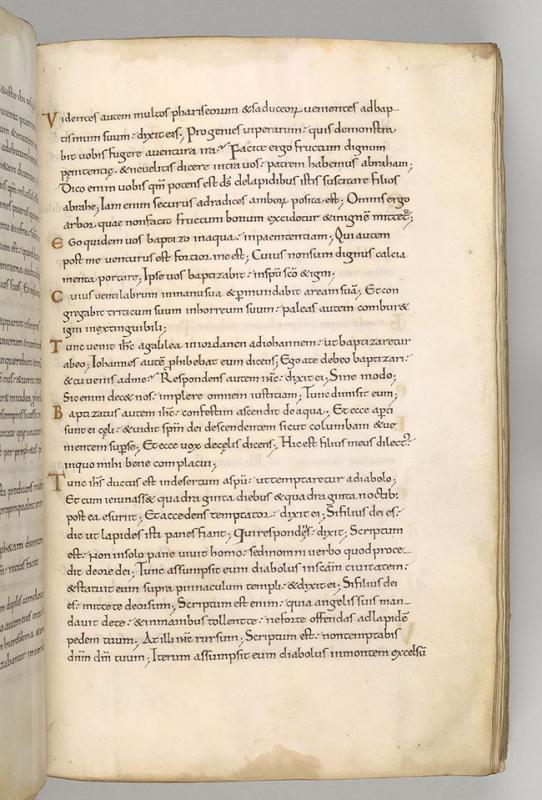 Videntes autem multos phariseorum & saduceorum uenientes adbap
tismum suum; dixit eis; Progenies uiperarum; quis demonstra
bit uobis fugere auentura ira; Facite ergo fructum dignum
penitentię; & neuelitis dicere intra uos; patrem habemus abraham;
Dico enim uobis qm̄ potens est ds̄ delapidibus istis suscitare filios
abrahę; Iam enim securus adradices arborum posita est; Omnis ergo
arbor quae nonfacit fructum bonum excidetur & inignē mittet̄;
Ego quidem uos baptizo inaqua; inpaenitentiam; Qui autem
post me uenturus est fortior me est; Cuius nonsum dignus calcia
menta portare; Ipse uos baptizabit; inspū scō & igni;
Cuius uentilabrum inmanu sua & permundabit aream suā; Et con
gregabit triticum suum inhorreum suum; paleas autem combur&
igni inextinguibili;
Tunc uenit ihc̄ agalilea iniordanen adiohannem; ut baptizaretur
abeo; Iohannes autē prohibebat eum dicens; Ego ate debeo baptizari;
& tu uenis adme; Respondens autem ihc̄; dixit ei; Sine modo;
Sic enim dec& nos; implere omnem iustitiam; Tunc dimisit eum;
Baptizatus autem ihc̄; confestim ascendit de aqua; Et ecce apti
sunt ei cęli; & uidit spm̄ dei descendentem sicut columbam & ue
nientem sup se; Et ecce uox decęlis dicens; Hic est filius meus dilect;
inquo mihi bene complacui;
Tunc ihs̄ ductus est indesertum aspū; ut temptaretur adiabolo;
Et cum ieiunass& quadraginta diebus & quadraginta noctib;
postea esuriit; Et accedens temptator; dixit ei; Si filius dei es;
dic ut lapides isti panes fiant; Qui respondēs; dixit; Scriptum
est; Non insolo pane uiuit homo; sedinomni uerbo quod proce
dit deore dei; Tunc assumpsit eum diabolus inscām ciuitatem;
& statuit eum supra pinnaculum templi; & dixit ei; Si filius dei
es; mitte te deorsum; Scriptum est enim; quia angelis suis man
dauit dete; & inmanibus tollent te; ne forte offendas adlapidē
pedem tuum; At illi ihc̄ rursum; Scriptum est; nontemptabis
dnm̄ dm̄ tuum; Iterum assumpsit eum diabolus inmontem excelsū